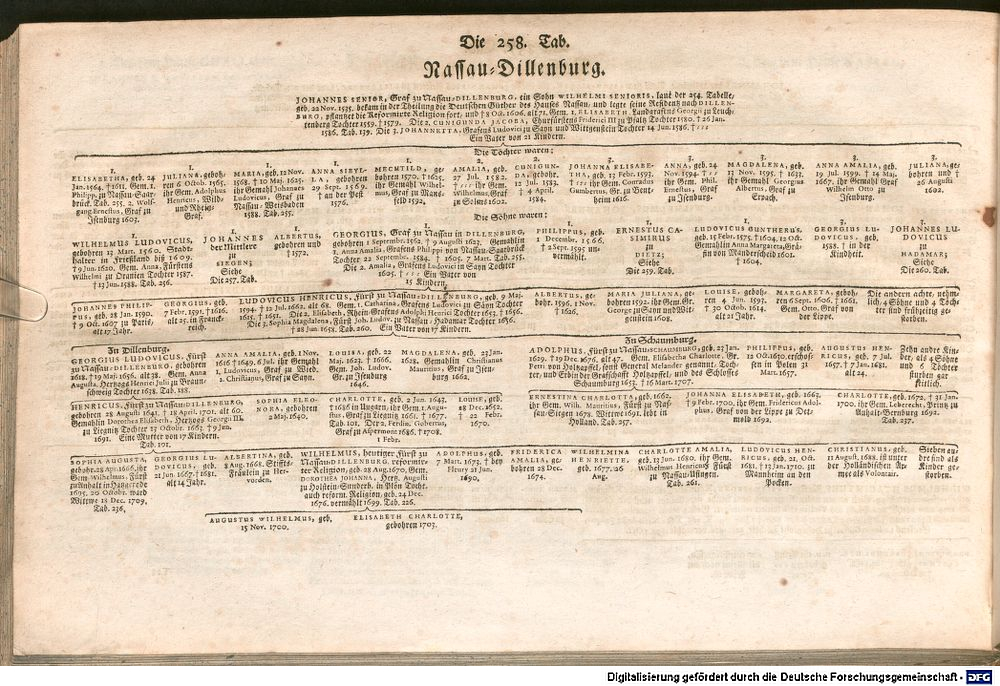 Die 258. Tab.
Nassau-Dillenburg.
JOHANNES SENIOR, Graf zu Nassau-DILLENBURG, ein Sohn WILHELMI SENIORIS, laut der 254. Tabelle,
geb. 22 Nov. 1535. bekam in der Theilung die Deutschen Güther des Hauses Nassau, und legte seine Residentz nach DILLEN-
BURG, pflantzet die Reformirte Religion fort, und † 8 Oct. 1606. alt 71. Gem. 1. ELISABETH Landgrafens Georgii zu Leuch-
tenberg Tochter 1559. † 1579. Die 2. CUNIGUNDA JACOBA, Churfürstens Friderici III zu Pfaltz Tochter 1580. † 26 Jan.
1586. Tab. 139. Die 3. JOHANNETTA, Grafens Ludovici zu Sayn und Wittgenstein Tochter 14 Jun. 1586. †
Ein Vater von 21 Kindern.
Die Töchter waren:
1.
ELISABETHA, geb. 24
Jan. 1564. † 1611. Gem. 1.
Philipp. zu Nassau-Saar-
brück. Tab. 255. 2. Wolf-
gang Ernestus, Graf zu
Isenburg 1603.
1.
JULIANA, geboh-
ren 6 Octob. 1565.
ihr Gem. Adolphus
Henricus, Wild-
und Rhein-
Graf.
1.
MARIA, geb. 12 Nov.
1568. † 10 Maj. 1625.
ihr Gemahl Johannes
Ludovicus, Graf zu
Nassau-Weisbaden
1588. Tab. 255.
1.
ANNA SIBYL-
LA, gebohren
29 Sept. 1569.
† an der Pest
1576.
1.
MECHTILD, ge-
bohren 1570. † 1625.
ihr Gemahl Wilhel-
mus, Graf zu Mans-
feld 1592.
2.
AMALIA, geb.
27 Jul. 1582.
† ihr Gem.
Wilhelmus, Graf
zu Solms 1602.
2.
CUNIGUN-
DA, gebohr.
12 Jul. 1583.
† 4 April.
1584.
3.
JOHANNA ELISABE-
THA, geb. 13 Febr. 1593.
† ihr Gem. Conradus
Gumbertus, Gr. zu Bent-
heim 1616.
3.
ANNA, geb. 24
Nov. 1594. †
ihr Gem. Phil.
Ernestus, Graf
zu Isenburg.
3.
MAGDALENA, geb.
13 Nov. 1595. † 1633.
ihr Gemahl Georgius
Albertus, Graf zu
Erpach.
3.
ANNA AMALIA, geb.
19 Jul. 1599. † 14 Maj.
1667. ihr Gemahl Graf
Wilhelm Otto zu
Isenburg.
3.
JULIANA, ge-
bohren und †
26 Augusti
1602.
Die Söhne waren:
1.
WILHELMUS LUDOVICUS,
gebohren 13 Mart. 1560. Stadt-
halter in Freeßland biß 1609.
† 9 Jun. 1620. Gem. Anna, Fürstens
Wilhelmi zu Oranien Tochter 1587.
† 13 Jun. 1588. Tab. 256.
1.
JOHANNES
der Mittlere
zu
SIEGEN;
Siehe
Die 257. Tab.
1.
ALBERTUS,
gebohren und
† 1572.
1.
GEORGIUS, Graf zu Nassau in DILLENBURG,
gebohren 1 Septembr. 1562. † 9 Augusti 1623. Gemahlin
1. Anna Amalia, Grafens Philippi von Nassau-Saarbrück
Tochter 22 Septembr. 1584. † 1605. 7 Mart. Tab. 255.
Die 2. Amalia, Grafens Ludovici in Sayn Tochter
1605. † Ein Vater von
15 Kindern.
1.
PHILIPPUS, geb.
1 Decembr. 1566.
† 2 Sept. 1595 un-
vermählt.
1.
ERNESTUS CA-
SIMIRUS
zu
DIETZ;
Siehe
Die 259. Tab.
1.
LUDOVICUS GUNTHERUS,
geb. 15 Febr. 1575. † 1604. 12 Oct.
Gemahlin Anna Margareta, Gräf-
fin von Manderscheid 1601.
† 1604.
2.
GEORGIUS LU-
DOVICUS, geb.
1588. † in der
Kindheit.
3.
JOHANNES LU-
DOVICUS
zu
HADAMAR;
Siehe
Die 260. Tab.
JOHANNES PHILIP-
PUS, geb. 28 Jan. 1590.
† 9 Oct. 1607 zu Pariß,
alt 17 Jahr.
GEORGIUS, geb.
7 Febr. 1591. † 1616.
alt 25. in Franck-
reich.
LUDOVICUS HENRICUS, Fürst zu Nassau-DILLENBURG, geb. 9 Maj.
1594. † 12 Jul. 1662. alt 68. Gem. 1. Catharina, Grafens Ludovici zu Sayn Tochter
1615. † 1651. Die 2. Elisabeth, Rhein-Grafens Adolphi Henrici Tochter 1653. † 1656.
Die 3. Sophia Magdalena, Fürst Joh. Ludov. zu Nassau-Hadamar Tochter 1656.
† 28 Jun. 1658. Tab. 260. Ein Vater von 17 Kindern.
ALBERTUS, ge-
bohr. 1596. 1 Nov.
† 1626.
MARIA JULIANA, ge-
bohren 1592. ihr Gem. Gr.
George zu Sayn und Wit-
genstein 1608.
LOUISE, geboh-
ren 4 Jun. 1593.
† 30 Octob. 1614.
alt 21 Jahr.
MARGARETA, geboh-
ren 6 Sept. 1606. † 1661.
Gem. Otto, Graf von
der Lippe.
Die andern achte, nehm-
lich, 4 Söhne und 4 Töch-
ter sind frühzeitig ge-
storben.
Zu Dillenburg.
GEORGIUS LUDOVICUS, Fürst
zu Nassau-DILLENBURG, gebohren
1618. † 19 Maj. 1656. alt 38. Gem. Anna
Augusta, Hertzogs Henrici Julii zu Braun-
schweig Tochter 1638. Tab. 188.
ANNA AMALIA, geb. 1 Nov.
1616 † 1649. 6 Jul. ihr Gemahl
1. Ludovicus, Graf zu Wied.
2. Christianus, Graf zu Sayn.
LOUISA, geb. 22
Maj. 1623. † 1666.
Gem. Joh. Ludov.
Gr. zu Isenburg
1646.
MAGDALENA, geb. 23 Jan.
1628. Gemahlin Christianus
Mauritius, Graf zu Isen-
burg 1662.
Zu Schaumburg.
ADOLPHUS, Fürst zu Nassau-SCHAUMBURG, geb. 23 Jan.
1629. † 19 Dec. 1676. alt 47. Gem. Elisabetha Charlotte, Gr.
Petri von Holtzapffel, sonst General Melander genannt, Toch-
ter, und Erbin der Grafschafft Holtzapffel, und des Schlosses
Schaumburg 1653. † 16 Mart. 1707.
PHILIPPUS, geb.
12 Oct. 1630. erschos-
sen in Polen 31
Mart. 1657.
AUGUSTUS HEN-
RICUS, geb. 7 Jul.
1657. † 7 Jan. 1681.
alt 24.
Zehn andre Kin-
der, als 4 Söhne
und 6 Töchter
sturben gar
zeitlich.
HENRICUS, Fürst zu Nassau-DILLENBURG,
gebohren 28 Augusti 1641. † 18 April. 1701. alt 60.
Gemahlin Dorothea Elisabeth, Hertzogs Georgii III.
zu Liegnitz Tochter 13 Octobr. 1663. † 9 Jun.
1691. Eine Mutter von 17 Kindern.
Tab. 101.
SOPHIA ELEO-
NORA, gebohren
2 Maj. 1640.
CHARLOTTE, geb. 2 Jun. 1643.
† 1686 in Ungarn, ihr Gem. 1. Augu-
stus, Graf zu Liegnitz 1661. † 1677.
Tab. 101. Der 2. Ferdin. Gobertus,
Graf zu Aspermont 1686. † 1708.
1 Febr.
LOUISE, geb.
28 Dec. 1652.
† 22 Febr.
1670.
ERNESTINA CHARLOTTE, geb. 1662,
ihr Gem. Wilh. Mauritius, Fürst zu Nas-
sau-Siegen 1678. Wittwe 1691. lebt in
Holland. Tab. 257.
JOHANNA ELISABETH, geb. 1663.
† 9 Febr. 1700. ihr Gem. Fridericus Adol-
phus, Graf von der Lippe zu Det-
mold 1692.
CHARLOTTE, geb. 1672. † 31 Jan.
1700. ihr Gem. Leberecht, Printz zu
Anhalt-Bernburg 1692.
Tab. 237.
SOPHIA AUGUSTA,
gebohr. 28 Apr. 1666. ihr
Gem. Wilhelmus, Fürst
zu Anhalt in Hartzgerode
1695. 20 Octobr. ward
Wittwe 18 Dec. 1709.
Tab. 236.
GEORGIUS LU-
DOVICUS, geb.
21 Jun. 1667. † 1681.
alt 14 Jahr.
ALBERTINA, geb.
3 Aug. 1668. Stiffts-
Fräulein zu Her-
vorden.
WILHELMUS, heutiger Fürst zu
Nassau-DILLENBURG, reformir-
ter Religion, geb. 28 Aug. 1670. Gem.
DOROTHEA JOHANNA, Hertz. Augusti
zu Holstein-Sunderb. in Plön Tocht.
auch reform. Religion, geb. 24 Dec.
1676. vermählt 1699. Tab. 226.
ADOLPHUS, geb.
7 Mart. 1673. † bey
Fleury 21 Jun.
1690.
FRIDERICA
AMALIE, ge-
bohren 28 Dec.
1674.
WILHELMINA
HENRIETTE,
geb. 1677. 26
Aug.
CHARLOTTE AMALIA,
geb. 13 Jun. 1680. ihr Gem.
Wilhelmus Henricus Fürst
zu Nassau-Usingen.
Tab. 261.
LUDOVICUS HEN-
RICUS, geb. 21. Oct.
1681. † 13 Jan. 1710. zu
Manheim an den
Pocken.
CHRISTIANUS, geb.
11 August. 1688. ist unter
der Holländischen Ar-
mee als Volontair.
Sieben an-
dre sind als
Kinder ge-
storben.
AUGUSTUS WILHELMUS, geb.
15 Nov. 1700.
ELISABETH CHARLOTTE,
gebohren 1703.
Digitalisierung gefördert durch die Deutsche Forschungsgemeinschaft - DFG